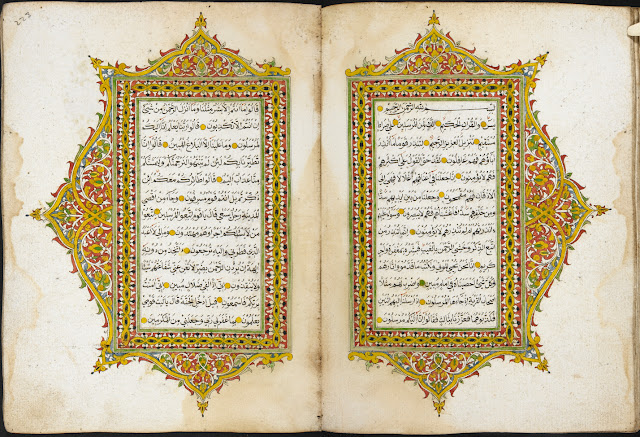 بسم الله الرحمن الرحيم
يس والقران الحكيم انك لمن المرسلين على صراط
مستقيم تنزيل العزيز الرحيم لتنذر قوما ما انذر
اباؤهم فهم غافلون لقد حق القول على اكثرهم
فهم لا يؤمنون انا جعلنا في اعناقهم اغلالا فهي الى
الاذقان فهم مقمحون وجعلنا من بين ايديهم سدا
ومن خلفهم سدا فاغشيناهم فهم لا يبصرون وسواء عليهم
ءانذرتهم ام لم تنذرهم لا يؤمنون انما تنذر من
اتبع الذكر وخشي الرحمن بالغيب فبشره بمغفرة واجر
كريم انا نحن نحيي الموتى ونكتب ما قدموا واثارهم
وكل شيء احصيناه في امام مبين واضرب لهم مثلا
اصحاب القرية اذ جاءها المرسلون اذ ارسلنا اليهم اثنين
فكذبوهما فعززنا بثالث فقالوا انا اليكم مرسلون
قالوا ما انتم الا بشر مثلنا وما انزل الرحمن من شيء
ان انتم الا تكذبون قالوا ربنا يعلم انا اليكم
لمرسلون وما علينا الا البلاغ المبين قالوا انا
تطيرنا بكم لئن لم تنتهوا لنرجمنكم وليمسنكم
منا عذاب اليم قالوا طائركم معكم ائن
ذكرتم بل انتم قوم مسرفون وجاء من اقصى
المدينة رجل يسعى قال يا قوم اتبعوا المرسلين اتبعوا
من لا يسئلكم اجرا وهم مهتدون وما لي لا اعبد
الذي فطرني واليه ترجعون ءاتخذ من دونه
الهة ان يردن الرحمن بضر لا تغن عني شفاعتهم شيئا
ولا ينقذون اني اذا لفي ضلال مبين اني امنت
بربكم فاسمعون قيل ادخل الجنة قال يا ليت قومي
يعلمون بما غفر لي ربي وجعلني من المكرمين